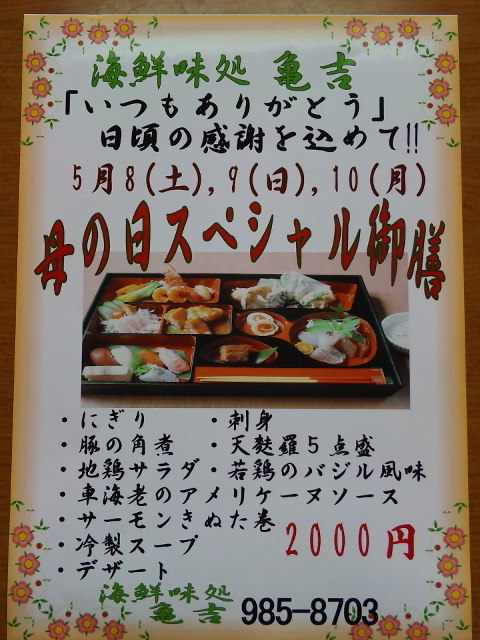 海鮮味処 亀吉
「いつもありがとう」
日頃の感謝を込めて!!
5月8(土),9(日),10(月)
母の日スペシャル御膳
・にぎり ・刺身
・豚の角煮 ・天麩羅5点盛
・地鶏サラダ ・若鶏のバジル風味
・車海老のアメリケーヌソース
・サーモンきぬた巻
・冷製スープ
・デザート
2000円
海鮮味処
亀吉
985-8703